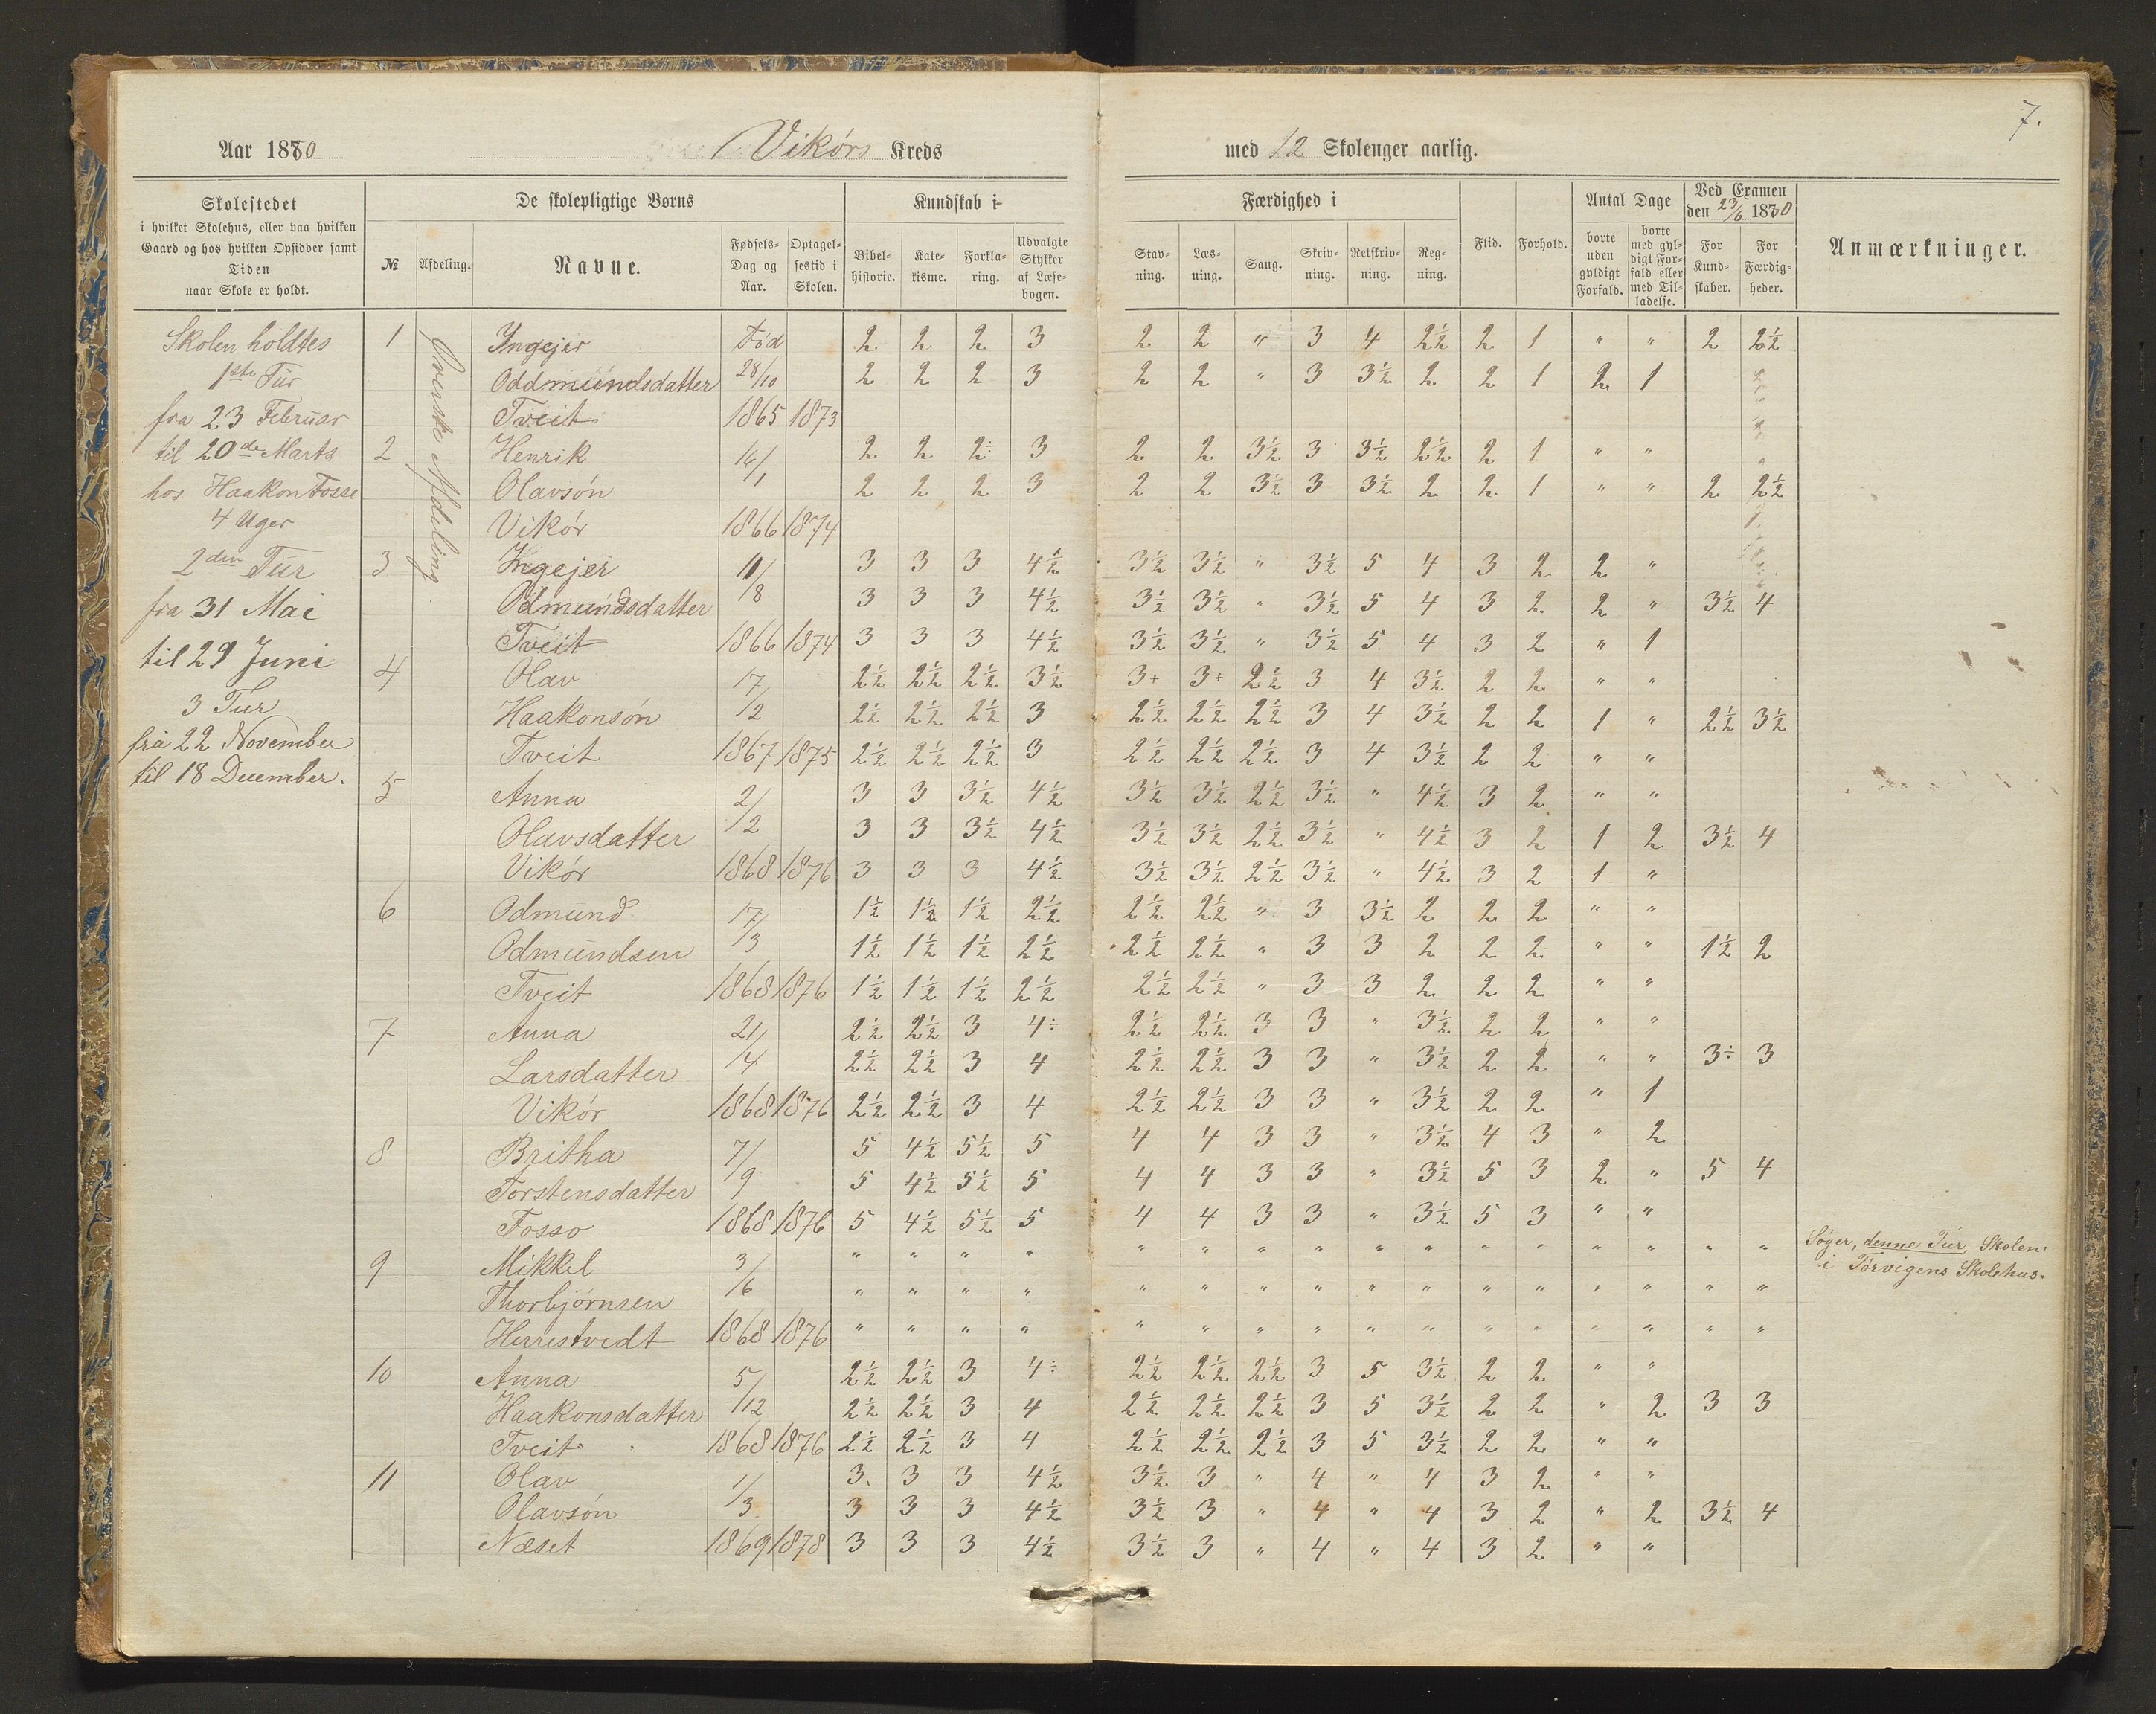 7.
Aar 1880 Vikørs Kreds med 12 Skolenger aarlig.
Skolestedet
i hvilket Skolehus, eller paa hvilken
Gaard og hos hvilken Opsidder samt
Tiden
naar Skole er holdt.
De skolepligtige Børns
№ Afdeling. Navne. Fødsels-Dag og Aar. Optagelsestid i Skolen.
Kundskab i
Bibelhistorie. Katekisme. Forklaring. Udvalgte Stykker af Læsebogen.
Færdighed i
Stavning. Læsning. Sang. Skrivning. Retskrivning. Regning.
Flid. Forhold.
Antal Dage
borte uden gyldigt Forfald. borte med gyldigt Forfald eller med Tilladelse.
Ved Examen
den 23/6 1880
For Kundskaber. For Færdigheder.
Anmærkninger.
Skolen holdtes
1ste Tür
fra 23 Februar
til 20de Marts
hos Haakon Fosse
4 Uger
2den Tur
fra 31 Mai
til 29 Juni
3 Tur
fra 22 November
til 18 December.
Øverste Afdeling
1 Yngejer Fød 2 2 2 3 2 2 " 3 4 2½ 2 1 " " 2 2½
Oddmundsdatter 28/10 2 2 2 3 2 2 " 3 3½ 2 2 1 2 1
Tveit 1865 1873
2 Henrik 14/1 2 2 2÷ 3 2 2 3½ 3 3½ 2½ 2 1 " "
Olavsøn 2 2 2 3 2 2 3½ 3 3½ 2 2 1 " " 2 2½
Vikør 1866 1874
3 Ingejer 11/8 3 3 3 4½ 3½ 3½ " 3½ 5 4 3 2 2 "
Odmundsdatter 3 3 3 4½ 3½ 3½ " 3½ 5 4 3 2 2 " 3½ 4
Tveit 1866 1874 3 3 3 4½ 3½ 3½ " 3½ 5 4 3 2 " 1
4 Olav 17/2 2½ 2½ 2½ 3½ 3+ 3+ 2½ 3 4 3½ 2 2 " "
Haakonsøn 2½ 2½ 2½ 3 2½ 2½ 2½ 3 4 3½ 2 2 1 " 2½ 3½
Tveit 1867 1875 2½ 2½ 2½ 3 2½ 2½ 2½ 3 4 3½ 2 2 " "
5 Anna 2/2 3 3 3½ 4½ 3½ 3½ 2½ 3½ " 4½ 3 2 " "
Olavsdatter 3 3 3½ 4½ 3½ 3½ 2½ 3½ " 4½ 3 2 1 2 3½ 4
Vikør 1868 1876 3 3 3 4½ 3½ 3½ 2½ 3½ " 4½ 3 2 1 "
6 Odmund 17/3 1½ 1½ 1½ 2½ 2½ 2½ " 3 3½ 2 2 2 " "
Odmundsen 1½ 1½ 1½ 2½ 2½ 2½ " 3 3 2 2 2 " " 1½ 2
Tveit 1868 1876 1½ 1½ 1½ 2½ 2½ 2½ " 3 3 2 2 2 " "
7 Anna 21/4 2½ 2½ 3 4÷ 2½ 2½ 3 3 " 3½ 2 2 " "
Larsdatter 2½ 2½ 3 4 2½ 2½ 3 3 " 3½ 2 2 " " 3÷ 3
Vikør 1868 1876 2½ 2½ 3 4 2½ 2½ 3 3 " 3½ 2 2 " 1
8 Britha 7/9 5 4½ 5½ 5 4 4 3 3 " 3½ 4 3 " 2
Torstensdatter 5 4½ 5½ 5 4 4 3 3 " 3½ 5 3 2 " 5 4
Fosso 1868 1876 5 4½ 5½ 5 4 4 3 3 " 3½ 5 3 " "
9 Mikkel 3/6 " " " " " " " " " " " " " " " " Søger, denne Tur, Skolen
Thorbjørnsen " " " " " " " " " " " " " " " " i Tørvigens Skolehus.
Herrestvedt 1868 1876 " " " " " " " " " " " " " " " "
10 Anna 5/12 2½ 2½ 3 4÷ 2½ 2½ 2½ 3 5 3½ 2 2 " "
Haakonsdatter 2½ 2½ 3 4 2½ 2½ 2½ 3 5 3½ 2 2 " 2 3 3
Tveit 1868 1876 2½ 2½ 3 4 2½ 2½ 2½ 3 5 3½ 2 2 " "
11 Olav 1/3 3 3 3 4½ 3½ 3 " 4 " 4 3 2 " "
Olavsøn 3 3 3 4½ 3½ 3 " 4 " 4 3 2 " 2 3½ 4
Næset 1869 1878 3 3 3 4½ 3½ 3 " 4 " 4 3 2 " "